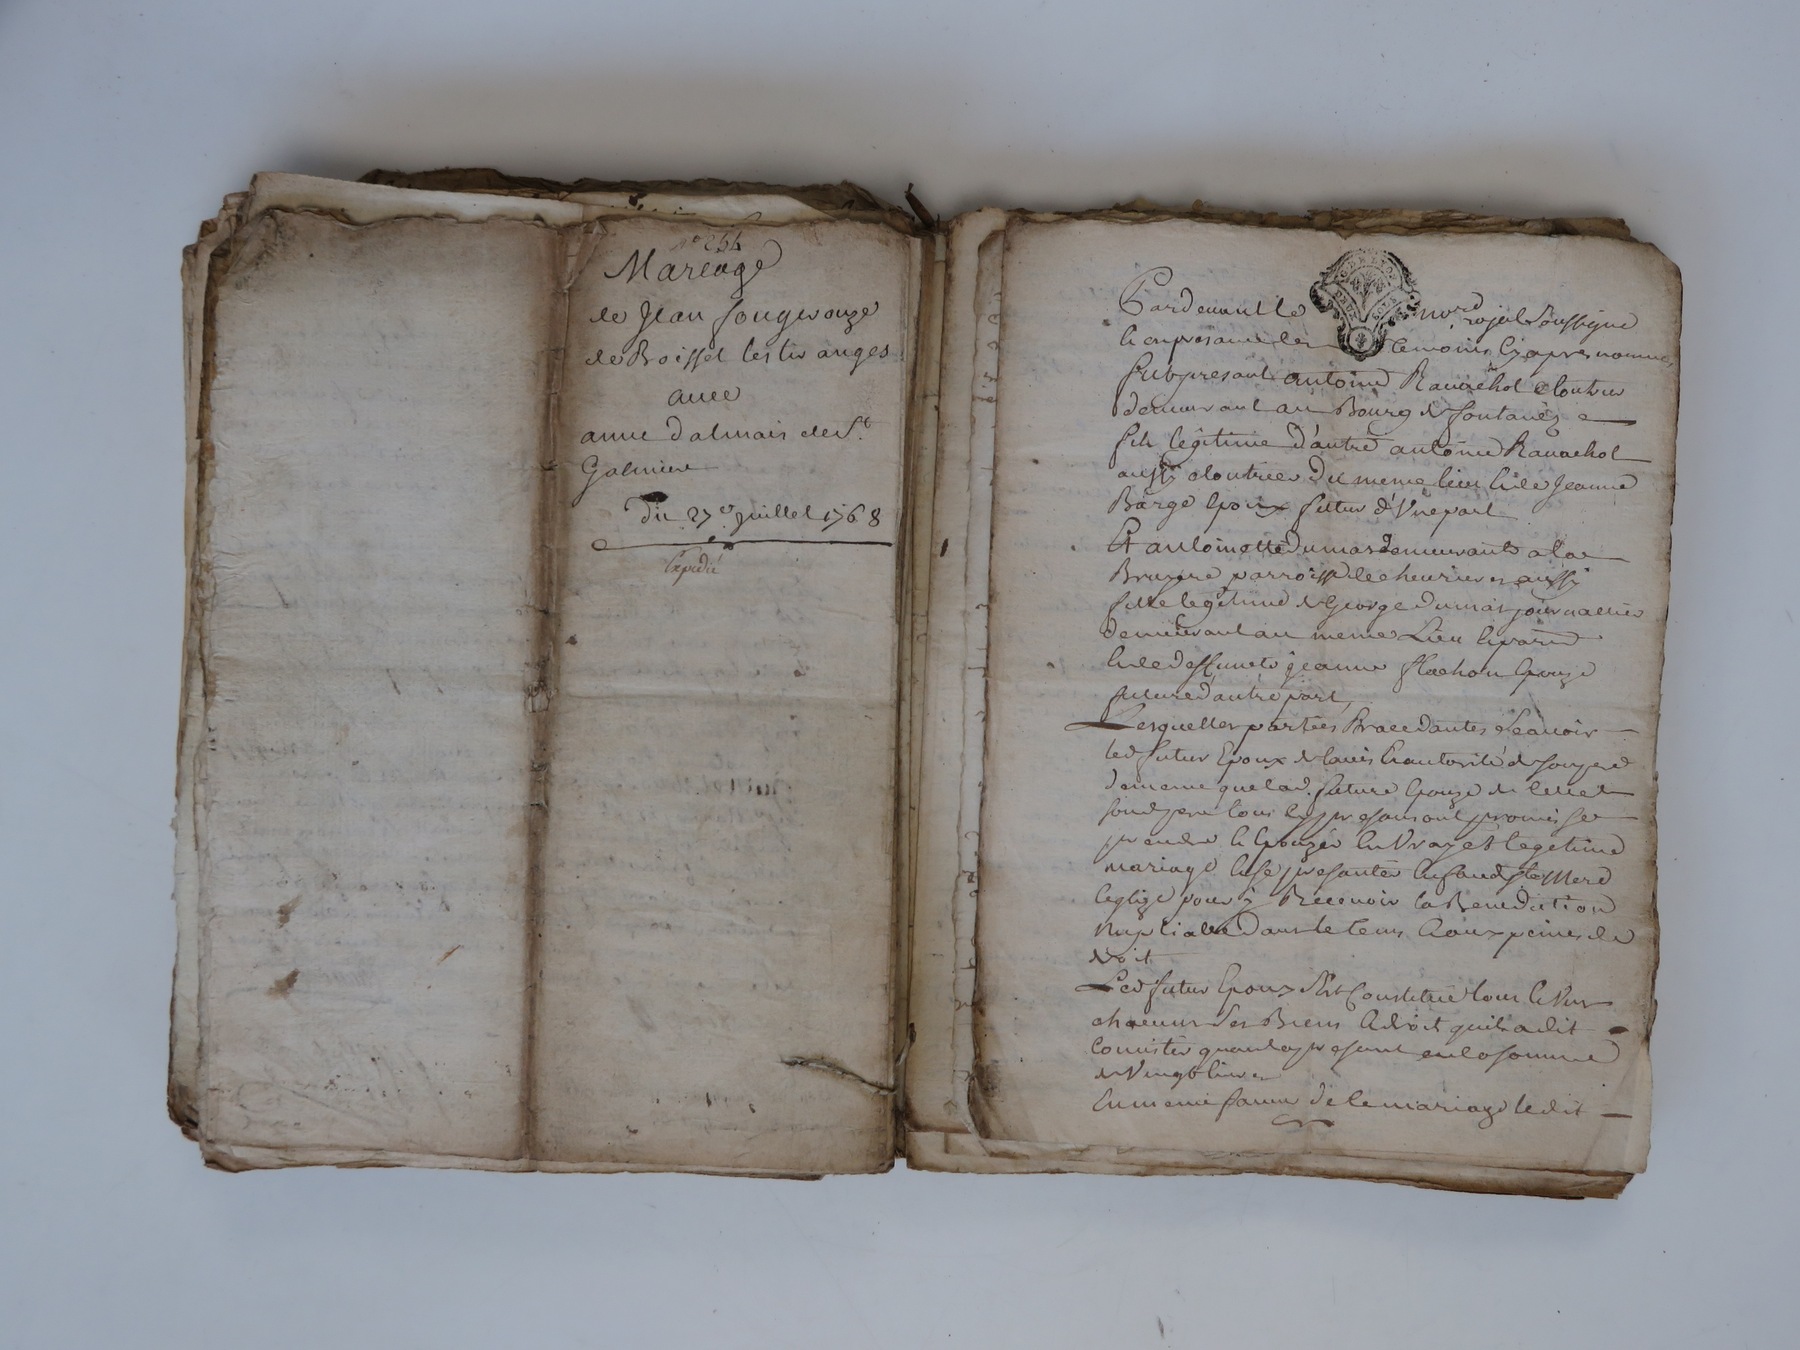 n° 254
Mareage
de Jean fougerouze
de Boisset les tir anges
avec
anne dalmais de St.
Galmier
Du 27e juillet 1768
Expedié
Pardevant le nore royal Soussigne
& en presance des temoins cy apres nommes
fut present antoine Ravachol cloutier
demeurant au Bourg de fontanès
fils legitime d'autre antoine Ravachol
aussy cloutier du meme lieu & de Jeanne
Barge Epoux futur d'Une part
Et antoinette dumas demeurante a la
Bruyere parroisse de chevrieres aussy
fille legitime de George dumas journallier
demeurant au meme Lieu
& de deffuncte jeanne flachon Epouze
future d'autre part,
Lesquelles parties Procedantes Scavoir
led. futur Epoux de lavis & authorité de son pere
de meme que lad. future Epouze de celle de
son pere tous cy presans ont promis se
prendre & Epouzer En Vray & legetime
mariage & se presanter En face de Ste Mere
Eglize pour y Recevoir la Benediction
Nuptialle dans le tems & aux peines de
droit
Led. futur Epoux s'est Constitué tous & Uns
chacuns Ses Biens & droit quil a dit
Consister quand a present en la somme
de Vingt livres
En meme faveur de ce mariage ledit